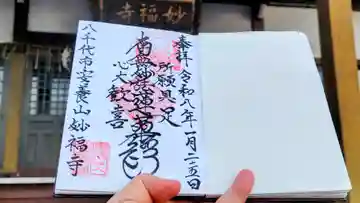 妙福寺
奉拝 令和八年一月二五日
所願具足
南無妙法蓮華経
心大歓喜
八千代市 安養山 妙福寺